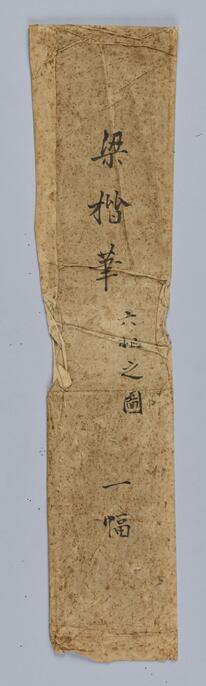 梁楷筆
六祖之圖
一幅